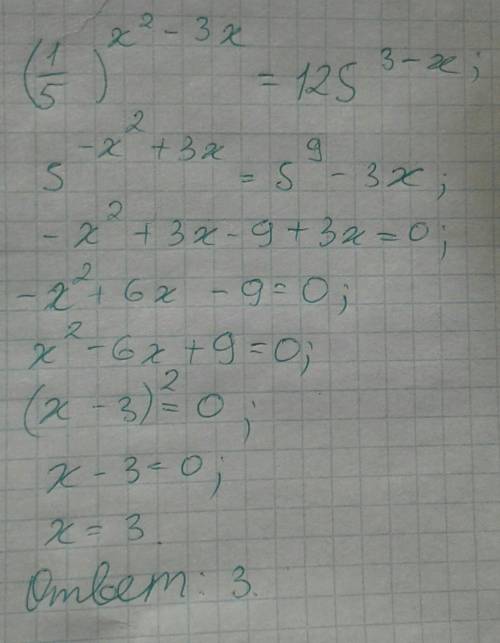 (1/5)^(x² - 3x) = 125^(3-x);
5^(-x² + 3x) = 5^(9 - 3x);
-x² + 3x - 9 + 3x = 0;
-x² + 6x - 9 = 0;
x² - 6x + 9 = 0;
(x - 3)² = 0;
x - 3 = 0;
x = 3.
Ответ: 3.